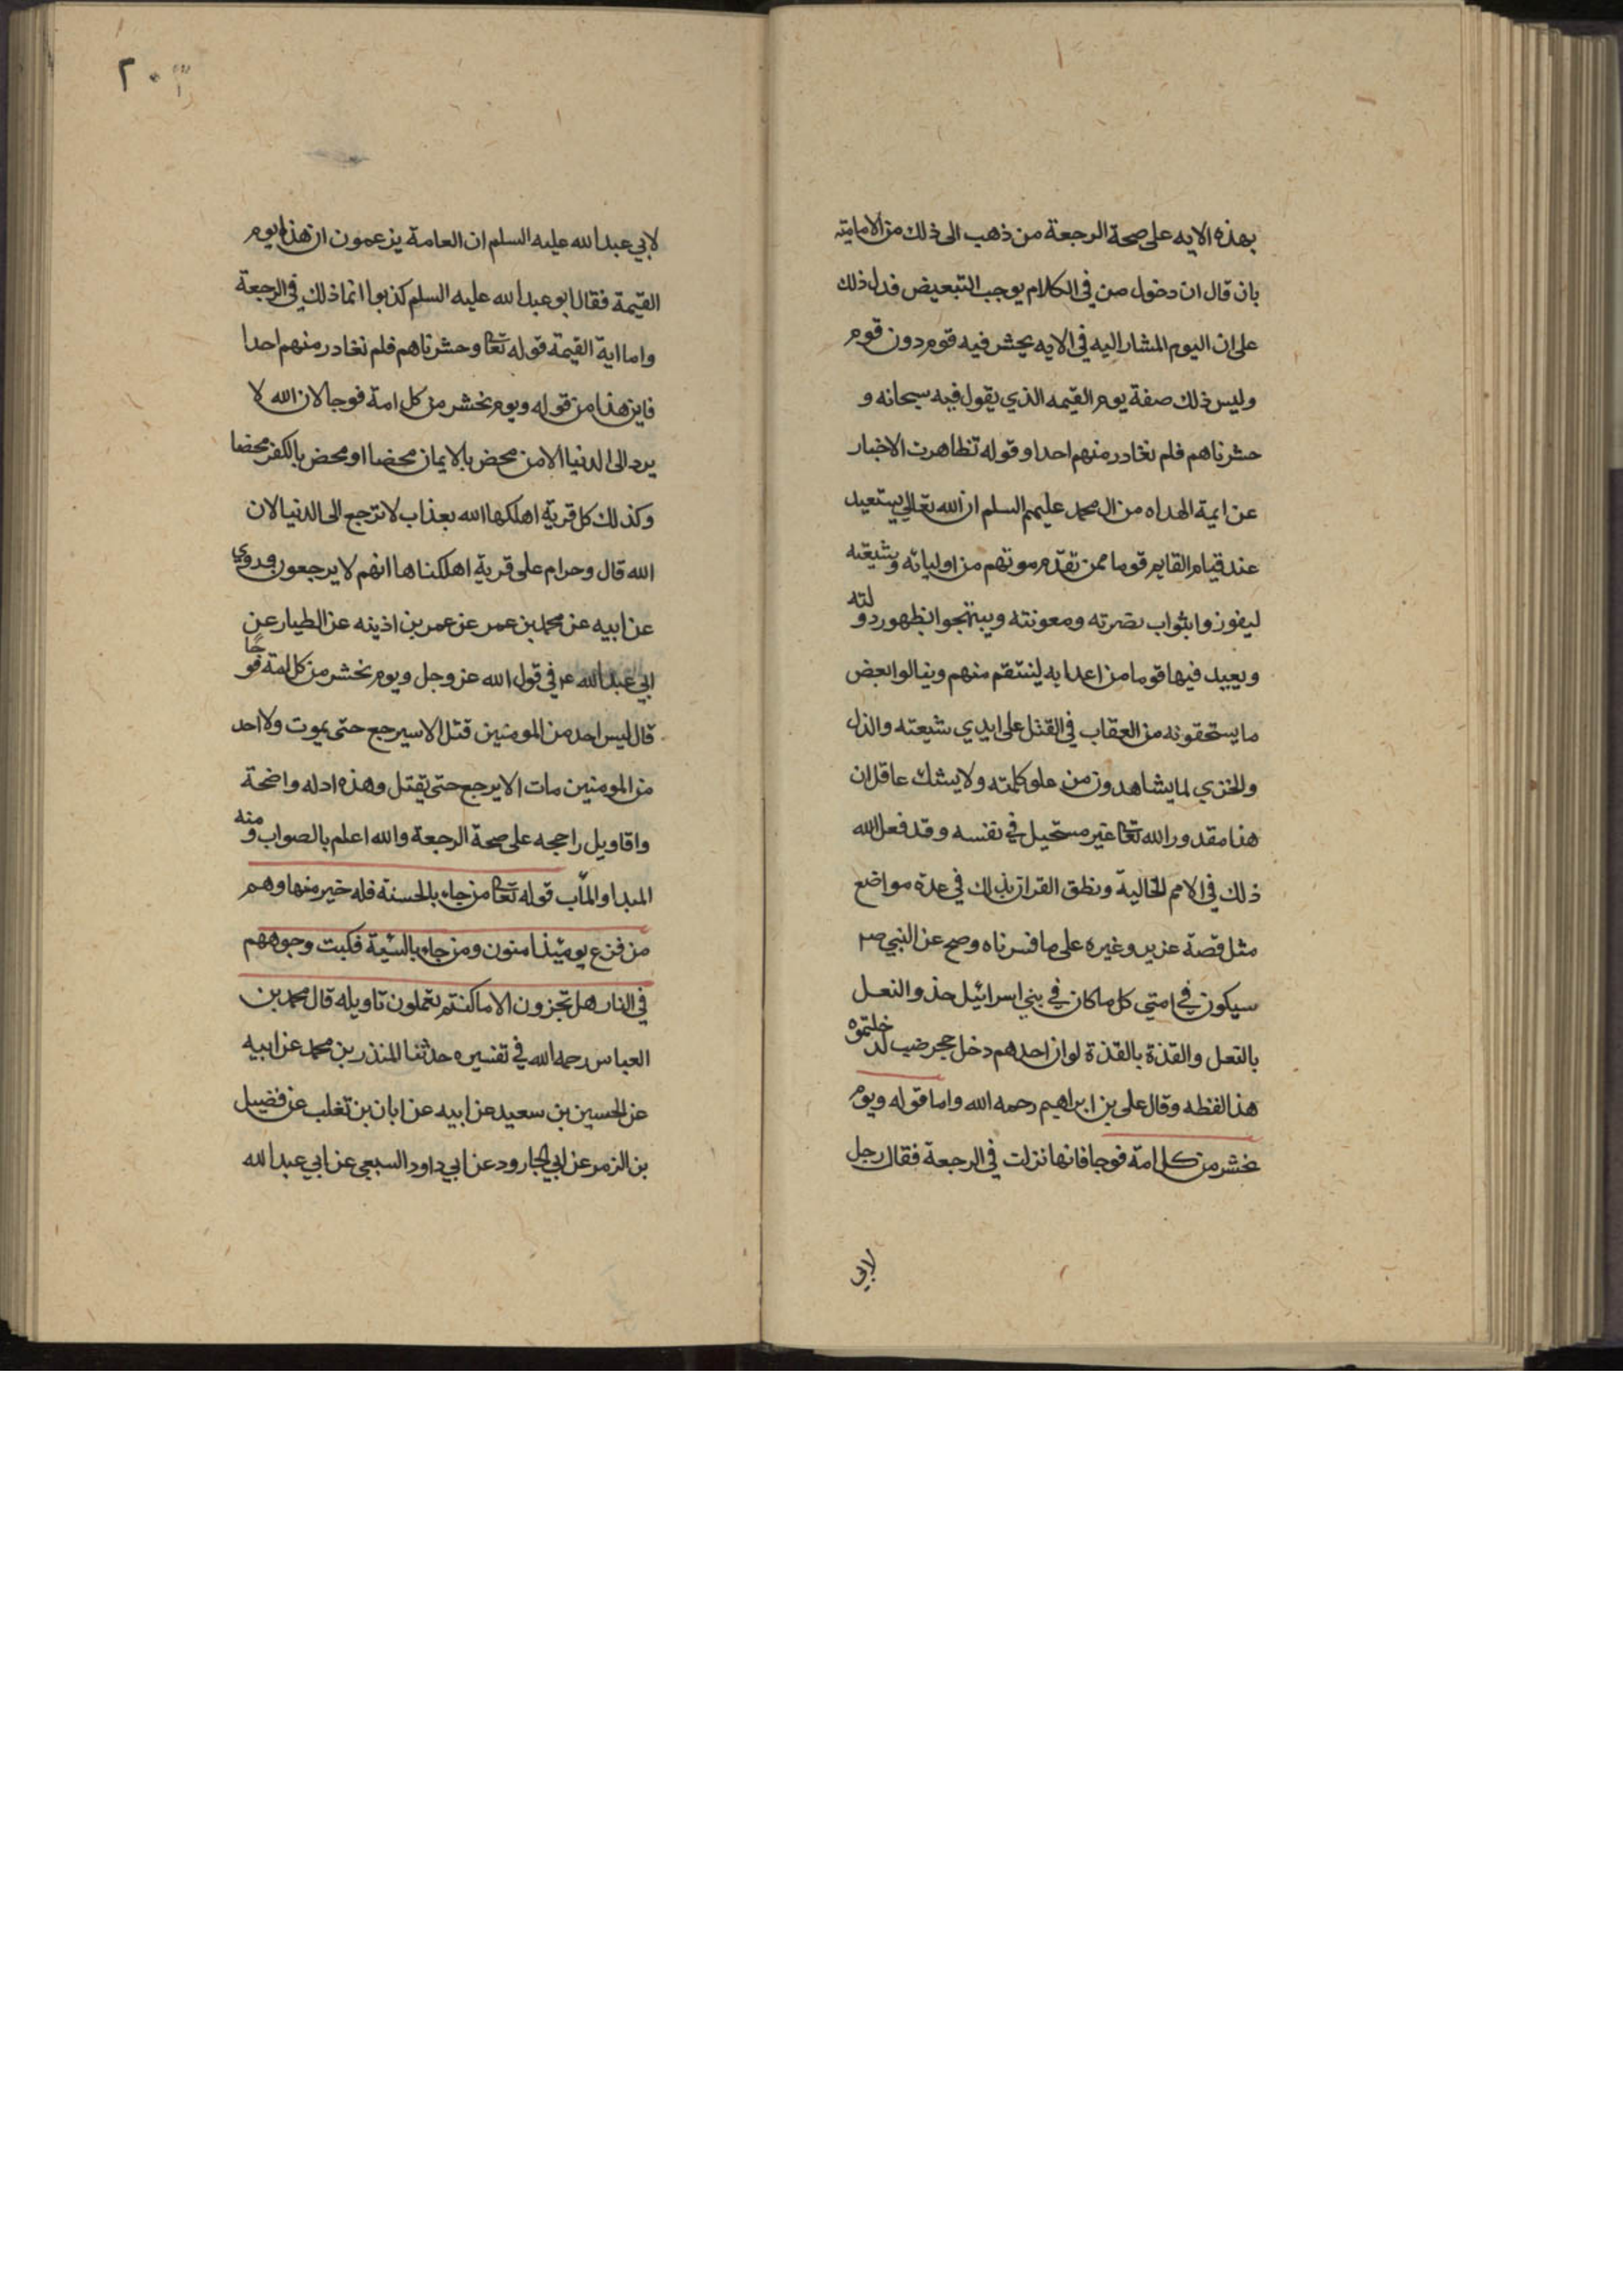 بهذه الايه على صحة الرجعة من ذهب الى ذلك من الامامية
بان قال ان دخول من في الكلام يوجب التبعيض فدل ذلك
على ان اليوم المشار اليه في الايه يحشر فيه قوم دون قوم
وليس ذلك صفة يوم القيمه الذي يقول فيه سبحانه و
حشرناهم فلم نغادر منهم احدا وقوله تظاهرت الاخبار
عن ايمة الهداه من ال محمد عليهم السلم ان الله تعالى يستعيد
عند قيام القايم قوما ممن تقدم موتهم من اوليائه وشيعته
ليفوزوا بثواب نصرته ومعونته ويبتهجوا بظهور دولته
ويعيد فيها قوما من اعدايه لينتقم منهم وينالوا بعض
ما يستحقونه من العقاب في القتل على ايدي شيعته والذل
والخزي لما يشاهدون من علو كلمته ولا يشك عاقل ان
هذا مقدور الله تعا غير مستحيل في نفسه وقد فعل الله
ذلك في الامم الخالية ونطق القران بذلك في عدة مواضع
مثل قصة عزير وغيره على ما فسرناه وصح عن النبي ص
سيكون في امتي كل ما كان في بني اسرائيل حذو النعل
بالنعل والقذة بالقذة لو ان احدهم دخل جحر ضب لدخلتموه
هذا لفظه وقال علي بن ابراهيم رحمه الله واما قوله ويوم
نحشر من كل امة فوجا فانها نزلت في الرجعة فقال رجل
لابي
٢٠٣
لابي عبد الله عليه السلم ان العامة يزعمون ان هذا يوم
القيمة فقال ابو عبد الله عليه السلم كذبوا انما ذلك في الرجعة
واما اية القيمة قوله تعا وحشرناهم فلم نغادر منهم احدا
فاين هذا من قوله ويوم نحشر من كل امة فوجا لان الله لا
يرد الى الدنيا الا من محض بالايمان محضا او محض بالكفر محضا
وكذلك كل قرية اهلكها الله بعذاب لا ترجع الى الدنيا لان
الله قال وحرام على قرية اهلكناها انهم لا يرجعون وروي
عن ابيه عن محمد بن عمر عن عمر بن اذينه عن الطيار عن
ابي عبد الله ع في قول الله عز وجل ويوم نحشر من كل امة فوجا
قال ليس احد من المومنين قتل الا سيرجع حتى يموت ولا احد
من المومنين مات الا يرجع حتى يقتل وهذه ادله واضحة
واقاويل راجحه على صحة الرجعة والله اعلم بالصواب ومنه
المبدا والمآب قوله تعا من جاء بالحسنة فله خير منها وهم
من فزع يومئذ امنون ومن جاء بالسيئة فكبت وجوههم
في النار هل تجزون الا ما كنتم تعملون تاويله قال محمد بن
العباس رحمه الله في تفسيره حدثنا المنذر بن محمد عن ابيه
عن الحسين بن سعيد عن ابيه عن ابان بن تغلب عن فضيل
بن الزمر عن ابي الجارود عن ابي داود السبعي عن ابي عبد الله